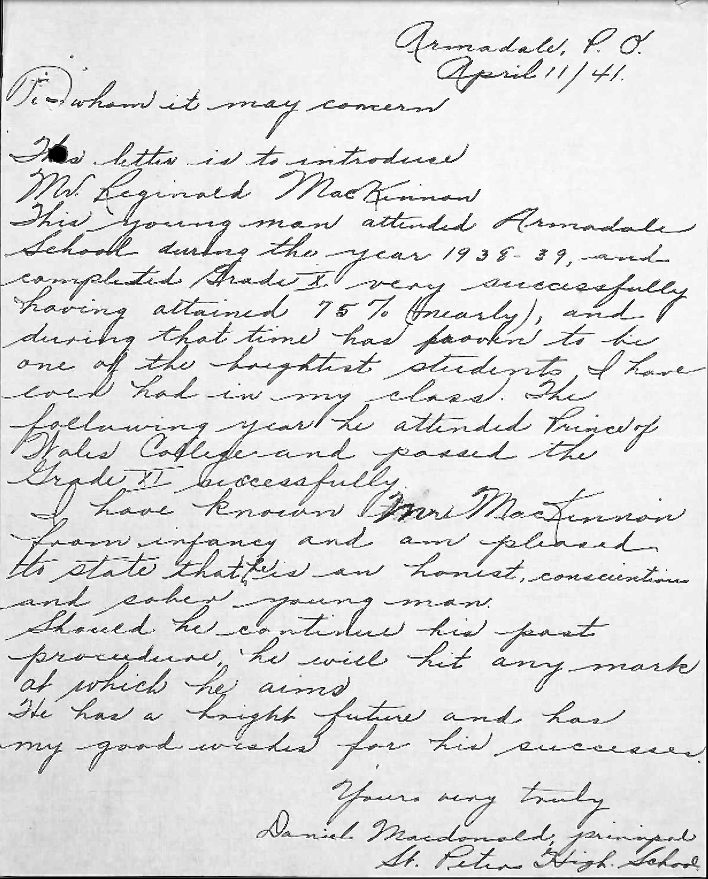 Armadale, P. O.
April 11/41.
To whom it may concern
This letter is to introduce
Mr. Reginald MacKinnon
This young man attended Armadale
School during the year 1938-39, and
completed Grade X very successfully
having attained 75% (nearly), and
during that time has proven to be
one of the brightest students I have
ever had in my class. The
following year he attended Prince of
Wales College and passed the
Grade XI successfully
I have known Mr. MacKinnon
from infancy and am pleased
to state that he is an honest, conscientious
and sober young man.
Should he continue his past
proceedure, he will hit any mark
at which he aims
He has a bright future and has
my good wishes for his successes.
Yours very truly
Daniel Macdonald, principal
St. Peters High School